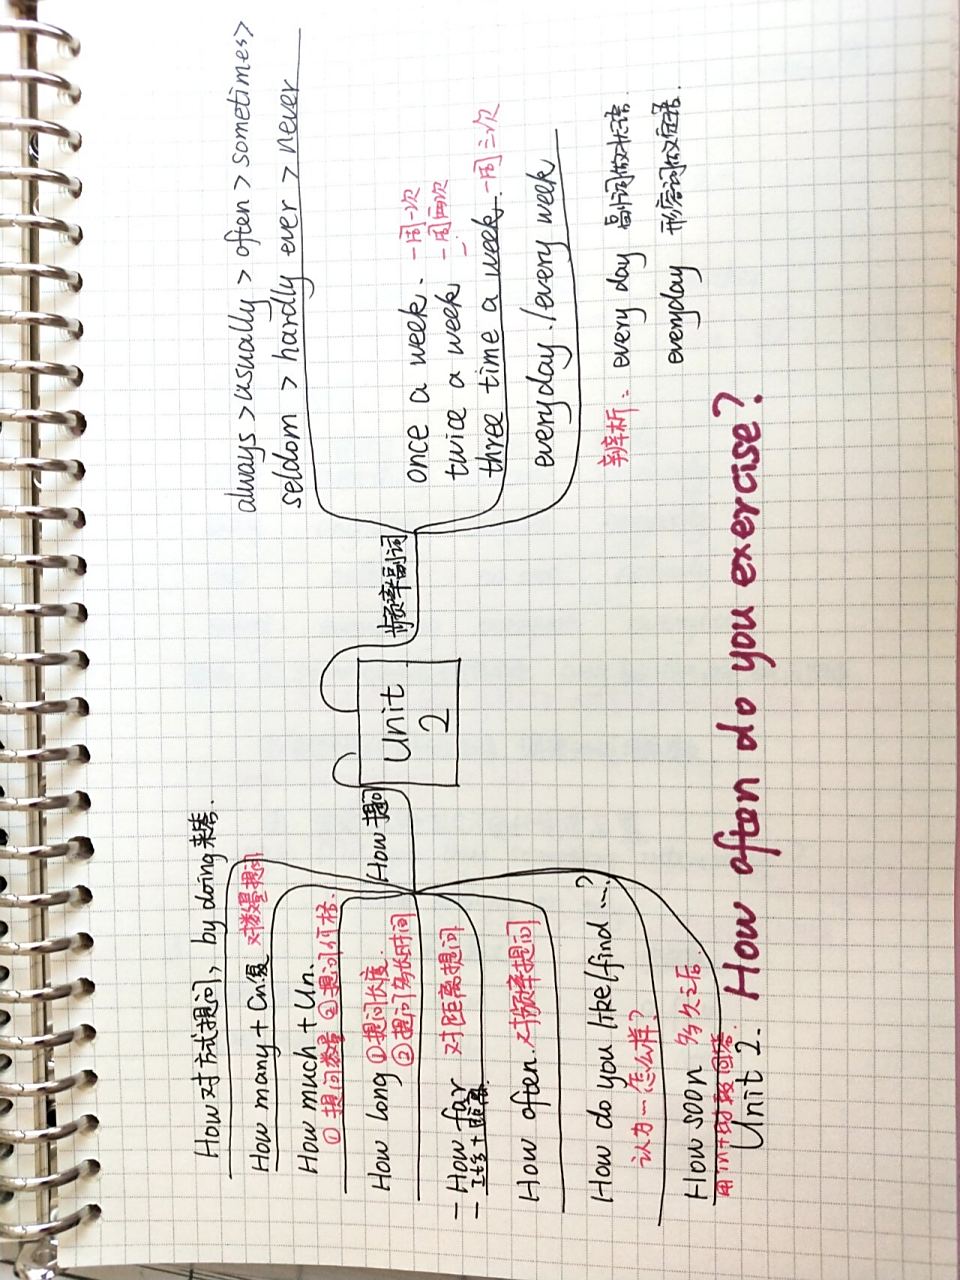 How 对方式提问, by doing 来答.
How many + Cn.复 对数量提问
How much + Un.
① 提问数量 ② 提问价格.
How long ①提问长度.
②提问多长时间
- How far 对距离提问
- It's + 距离.
How often. 对频率提问
How do you like/find ...?
认为…怎么样?
How soon 多久之后.
用in+时间段回答.
How 提问
Unit
2
频率副词
always > usually > often > sometimes >
seldom > hardly ever > never
once a week. 一周一次
twice a week 一周两次
three time a week. 一周三次
everyday. / every week
辨析: every day 副词做状语.
everyday 形容词做定语.
Unit 2. How often do you exercise?